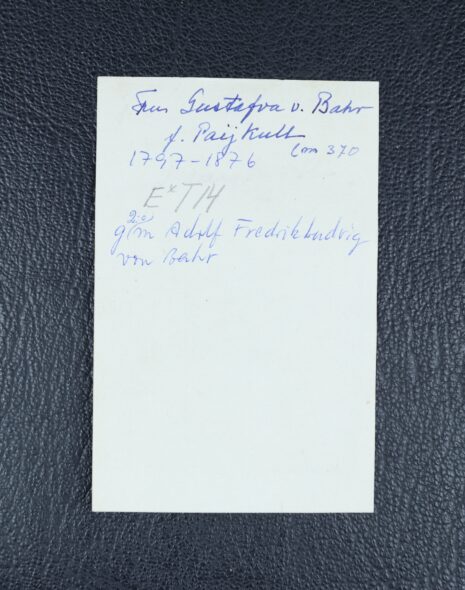 Fru Gustafva v. Bahr
f. Paijkull
1797-1876
E* T14
g m Adolf Fredrik Ludvig
von Bahr